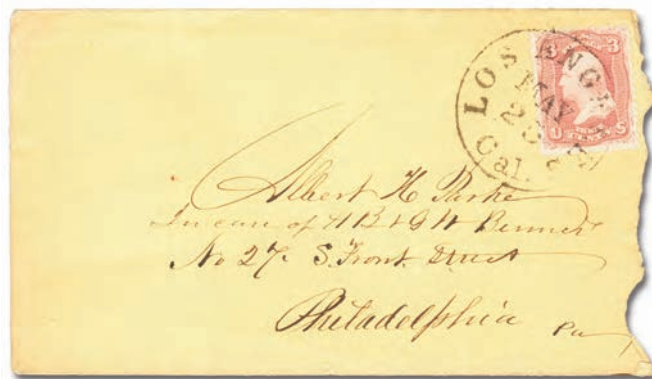 LOS ANGE
MAY
23
Cal.
3
U S
Albert H Parke
In care of H B & G W Benners
No 27. S. Front. Street
Philadelphia Pa